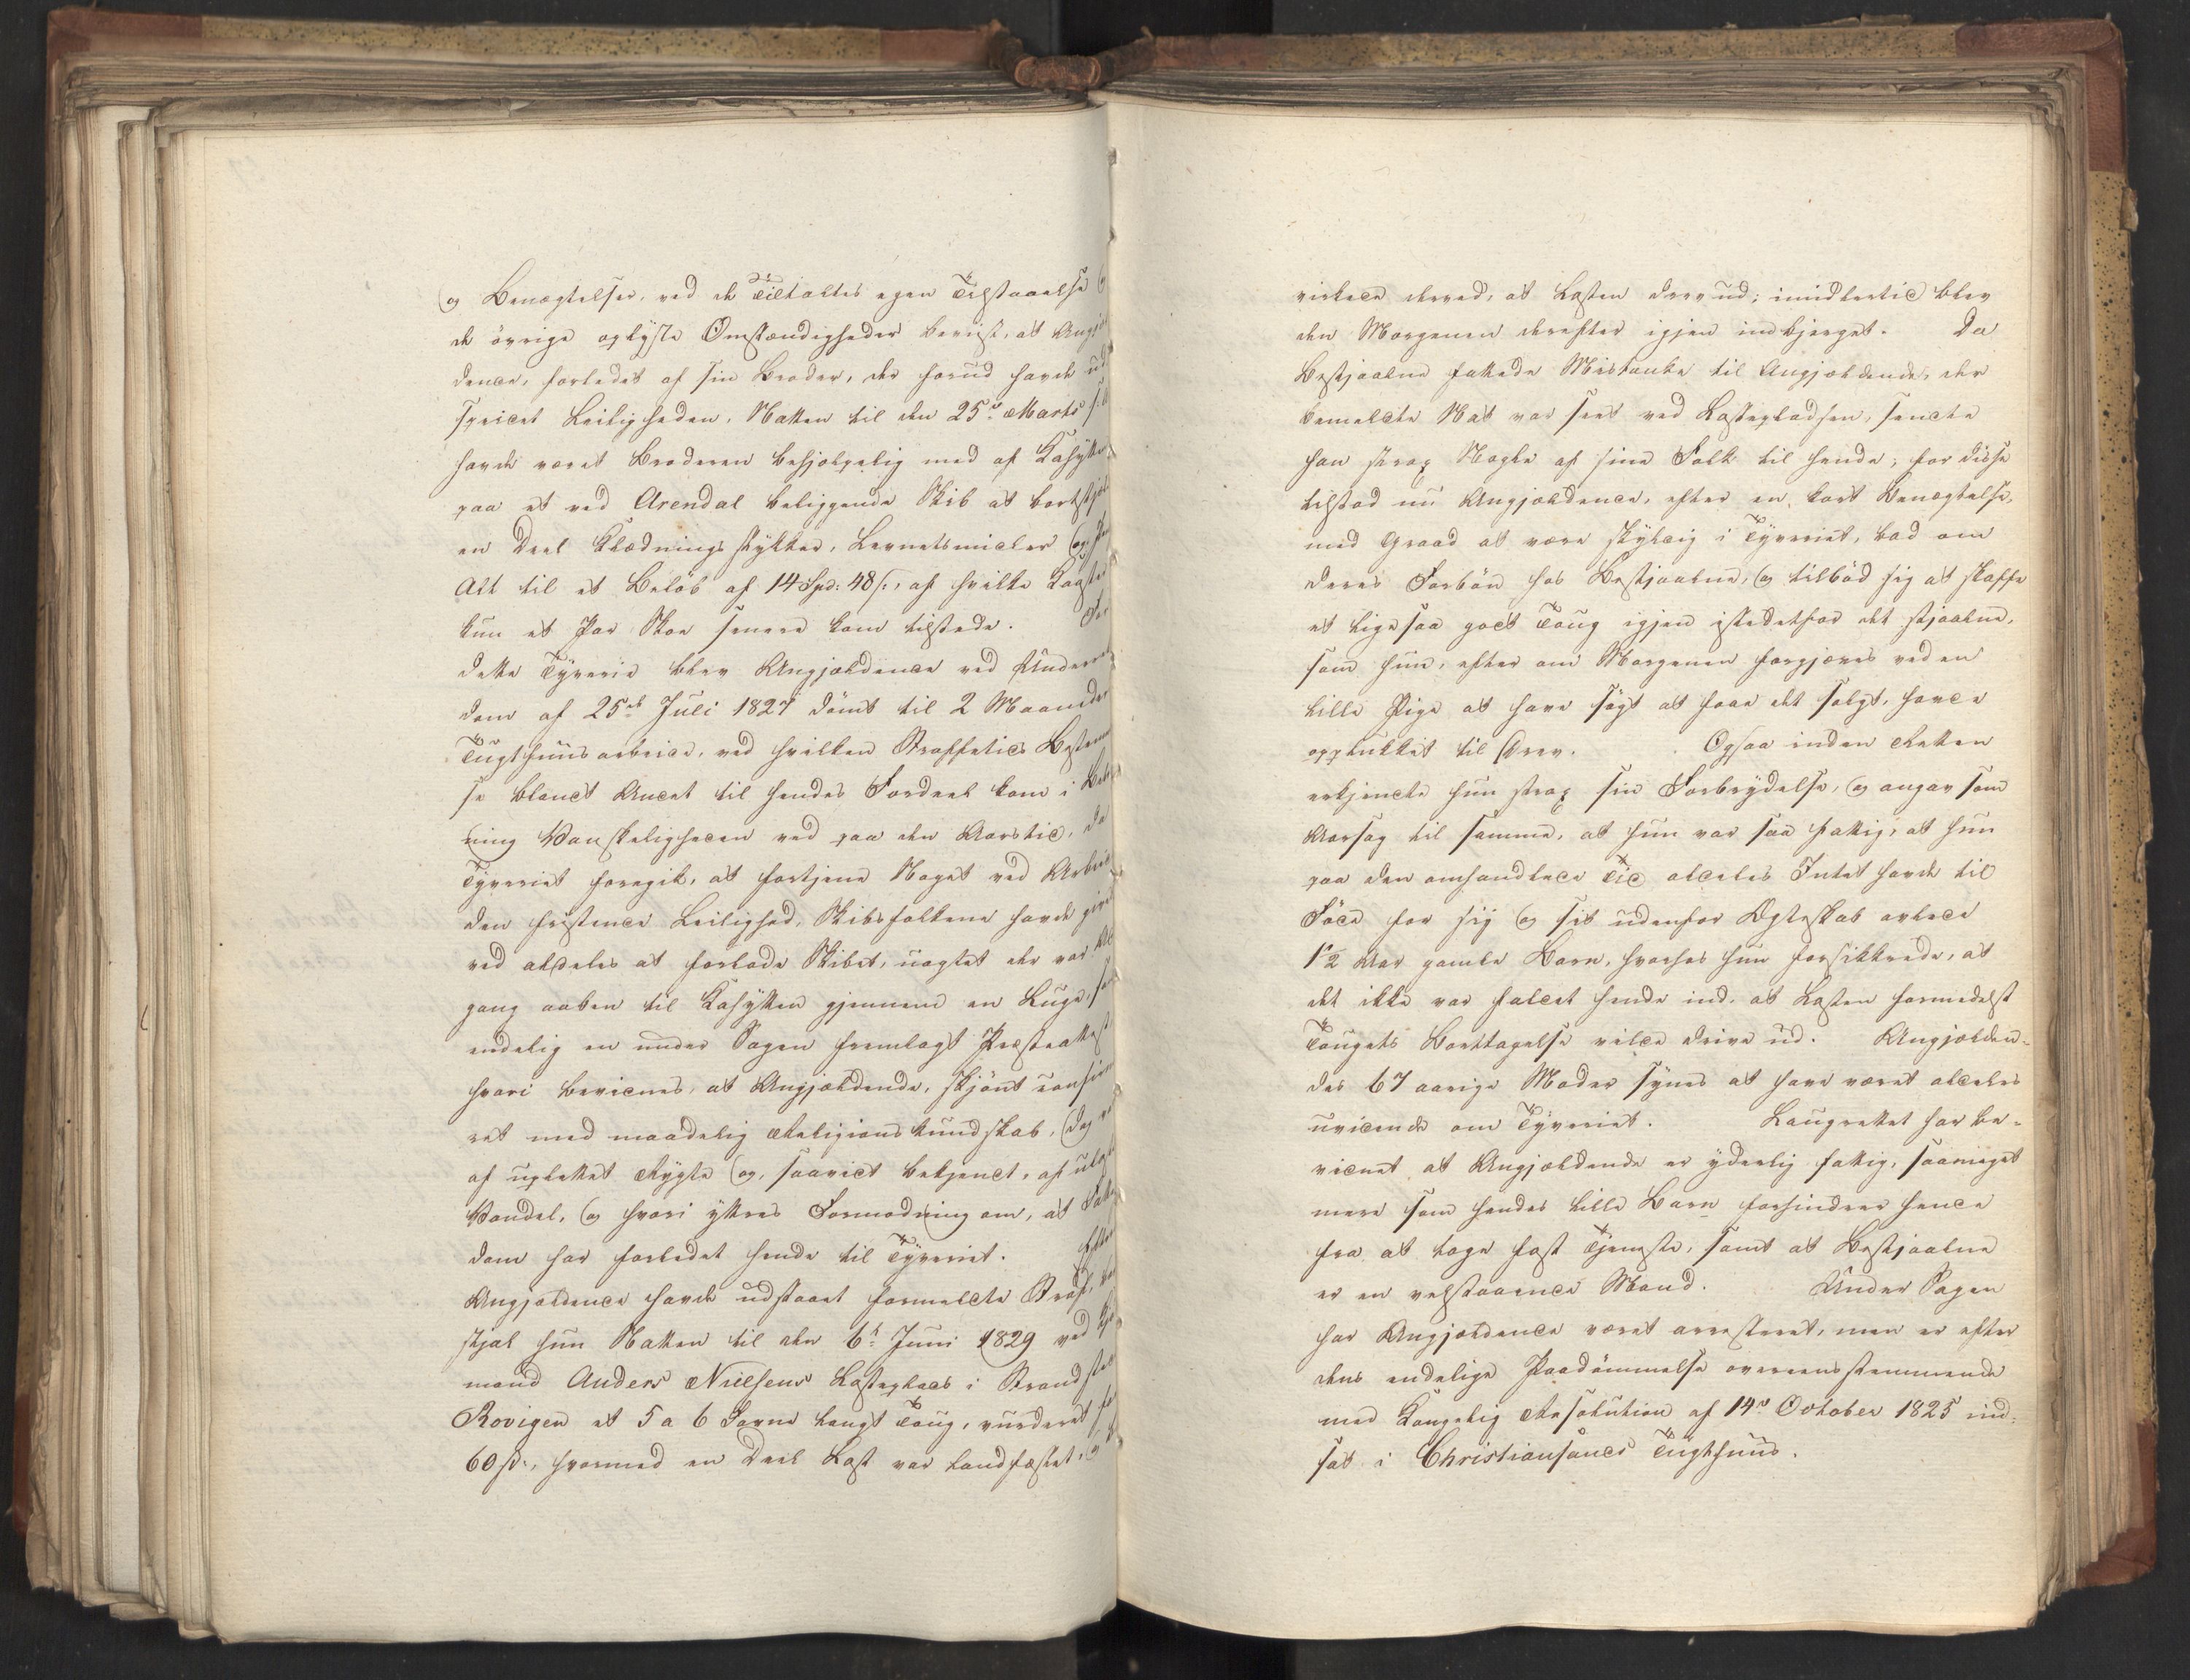 og Benægtelser, ved de Tiltaltes egen Tilstaaelse
de övrige oplyste Omstændigheder beviist, at Angjæl
dende, forledet af sin Broder, der forud havde ud
speidet Leiligheden, Natten til den 25de Marts
havde været Broderen behjelpelig med af Kahytten
paa et ved Arendal beliggende Skib at bortstjæle
en Deel Klædningsstykker, Levnetsmidler og
Alt til et Belöb af 14 Spd: 48 s., af hvilke Koster
kun et Par Skoe senere kom tilstede. For
dette Tyverie blev Angjældende ved Underrets
dom af 25de Juli 1827 dömt til 2 Maaneders
Tugthuusarbeide, ved hvilken Straffetids Bestemmel
se blandt Andet til hendes Fordeel kom i Betragt
ning Vanskeligheden ved paa den Aarstid, da
Tyveriet foregik, at fortjene Noget ved Arbeide
den fristende Leilighed, Skibsfolkene havde givet
ved aldeles at forlade Skibet, uagtet der var Ad
gang aaben til Kahytten gjennem en Luge, samt
endelig en under Sagen fremlagt Præsteattest
hvori bevidnes, at Angjældende, skjönt confirme
ret med maadelig Religionskundskab, dog var
af uplettet Rygte og, saavidt bekjendt, af ulastet
Vandel, og hvori yttres Formodning om, at Fattig
dom har forledet hende til Tyveriet. Efter at
Angjældende havde udstaaet formeldte Straf, har
stjal hun Natten til den 6te Juni 1829 ved Kjöb
mand Anders Nielsens Lasteplads i Strandstedet
Rovigen et 5 a 6 Favne langt Toug, vurderet for
60 s., hvormed en Deel Last var landfæstet, og
virkede derved, at Lasten drev ud; imidlertid blev
den Morgenen derefter igjen indbjerget. Da
Bestjaalne fattede Mistanke til Angjældende, der
bemeldte Nat var seet ved Lastepladsen, sendte
han strax Nogle af sine Folk til hende; for disse
tilstod nu Angjældende, efter en kort Benægtelse,
med Graad at være skyldig i Tyveriet, bad om
deres Forbön hos Bestjaalne, og tilböd sig at skaffe
et ligesaa godt Toug igjen istedetfor det stjaalne,
som hun, efter om Morgenen forgjæves ved en
lille Pige at have sögt at faae det solgt, havde
opplukket til Drev. Ogsaa inden Retten
erkjendte hun strax sin Forbrydelse, og angav som
Aarsag til samme, at hun var saa fattig, at hun
paa den omhandlede Tid aldeles Intet havde til
Föde for sig og sit udenfor Ægteskab avlede
1½ Aar gamle Barn, hvorhos hun forsikkrede, at
det ikke var faldet hende ind, at Lasten formedelst
Tougets Borttagelse vilde drive ud. Angjælden-
des 67 aarige Moder synes at have været aldeles
uvidende om Tyveriet. Laugrettet har be-
vidnet at Angjældende er yderlig fattig, saameget
mere som hendes lille Barn forhindrer hende
fra at tage fast Tjeneste, samt at Bestjaalne
er en velstaaende Mand. Under Sagen
har Angjældende været arresteret, men er efter
dens endelige Paadömmelse overeensstemmende
med Kongelig Resolution af 14de October 1825 ind-
sat i Christiansands Tugthuus.